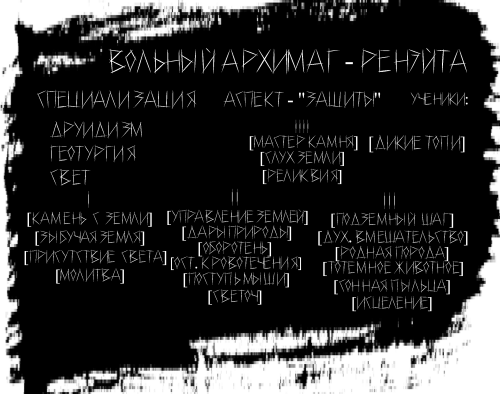 ВОЛЬНЫЙ АРХИМАГ - РЕНЭЙТА
СПЕЦИАЛИЗАЦИЯ АСПЕКТ - "ЗАЩИТЫ" УЧЕНИКИ:
ДРУИДИЗМ
ГЕОТУРГИЯ
СВЕТ
IIII
[МАСТЕР КАМНЯ] [ДИКИЕ ТОПИ]
[СЛУХ ЗЕМЛИ]
[РЕЛИКВИЯ]
I
[КАМЕНЬ С ЗЕМЛИ]
[ЗЫБУЧАЯ ЗЕМЛЯ]
[ПРИСУТСТВИЕ СВЕТА]
[МОЛИТВА]
II
[УПРАВЛЕНИЕ ЗЕМЛЕЙ]
[ДАРЫ ПРИРОДЫ]
[ОБОРОТЕНЬ]
[ОСТ. КРОВОТЕЧЕНИЯ]
[ПОСТУПЬ МЫШИ]
[СВЕТОЧ]
III
[ПОДЗЕМНЫЙ ШАГ]
[ДУХ. ВМЕШАТЕЛЬСТВО]
[РОДНАЯ ПОРОДА]
[ТОТЕМНОЕ ЖИВОТНОЕ]
[СОННАЯ ПЫЛЬЦА]
[ИСЦЕЛЕНИЕ]